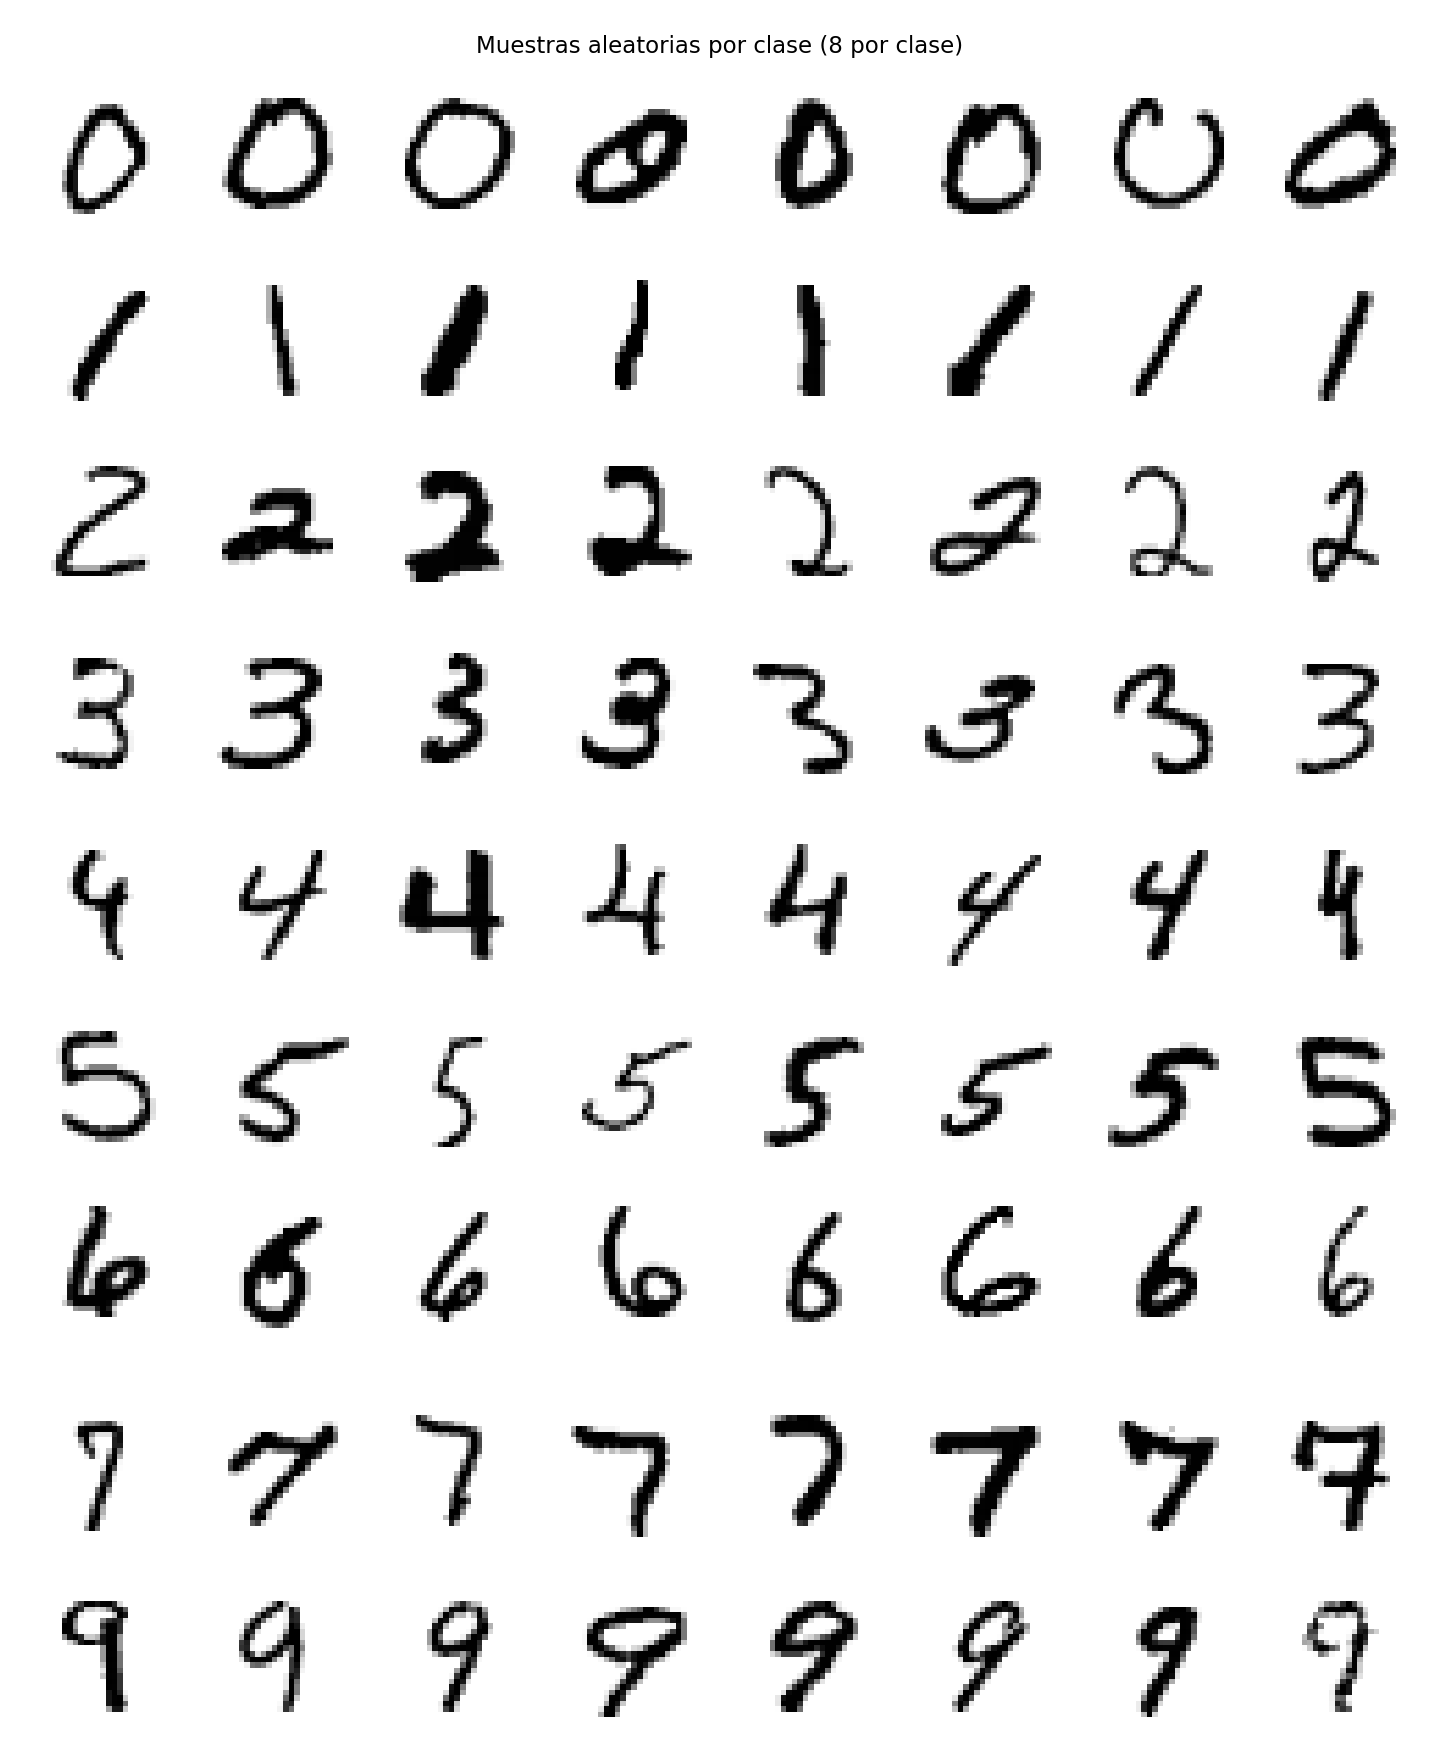 Muestras aleatorias por clase (8 por clase)
0 0 0 0 0 0 0 0
1 1 1 1 1 1 1 1
2 2 2 2 2 2 2 2
3 3 3 3 3 3 3 3
4 4 4 4 4 4 4 4
5 5 5 5 5 5 5 5
6 6 6 6 6 6 6 6
7 7 7 7 7 7 7 7
9 9 9 9 9 9 9 9